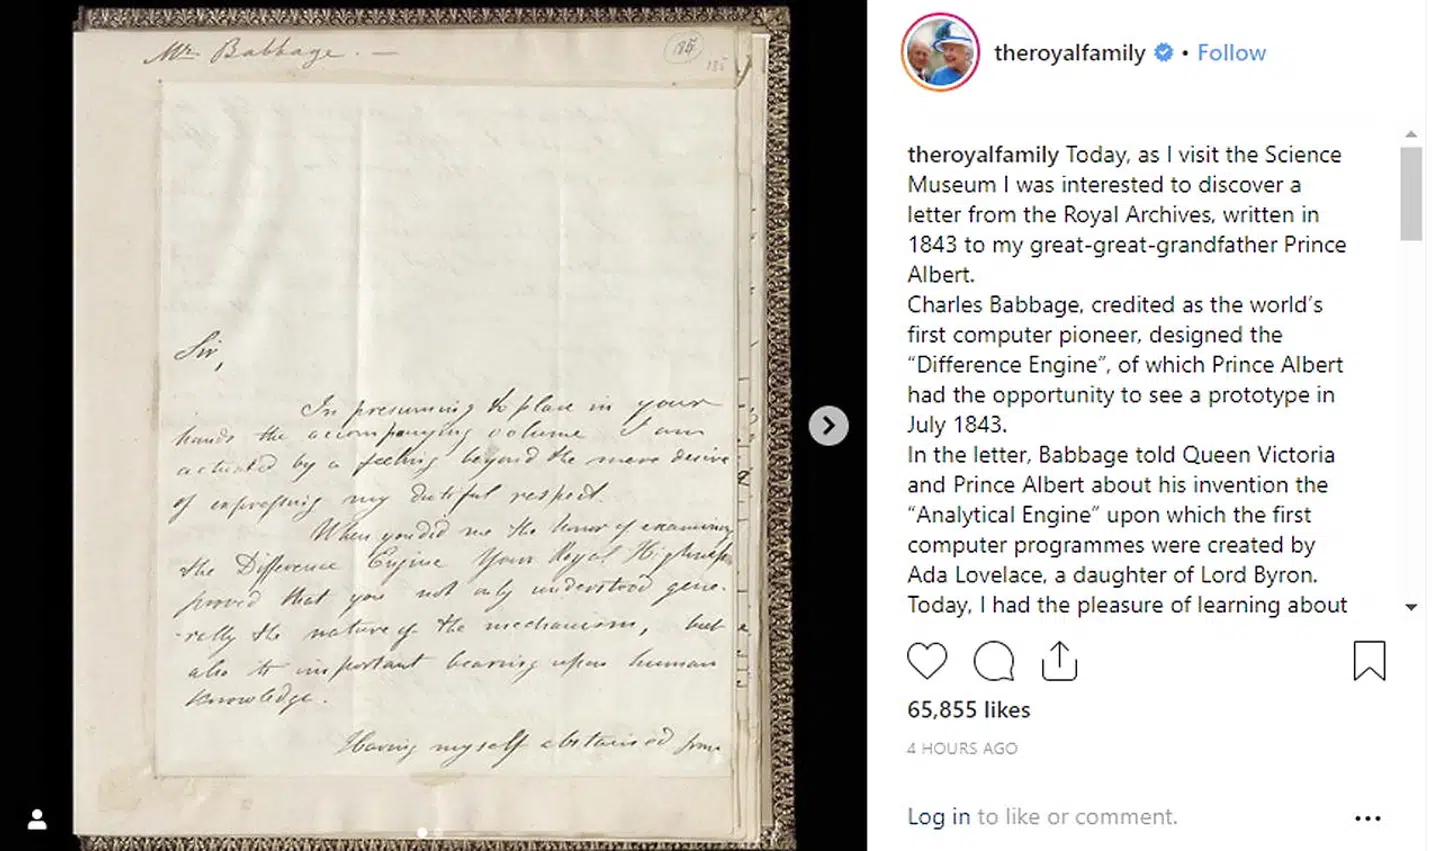 Mr. Babbage. —
185
185
Sir,
In presuming to place in your
hands the accompanying volume I am
actuated by a feeling beyond the mere desire
of expressing my dutiful respect.
When you did me the honor of examining
the Difference Engine Your Royal Highness
proved that you not only understood gene-
-rally the nature of the mechanism, but
also its important bearing upon human
knowledge.
Having myself abstained from
theroyalfamily • Follow
theroyalfamily Today, as I visit the Science
Museum I was interested to discover a
letter from the Royal Archives, written in
1843 to my great-great-grandfather Prince
Albert.
Charles Babbage, credited as the world's
first computer pioneer, designed the
“Difference Engine”, of which Prince Albert
had the opportunity to see a prototype in
July 1843.
In the letter, Babbage told Queen Victoria
and Prince Albert about his invention the
“Analytical Engine” upon which the first
computer programmes were created by
Ada Lovelace, a daughter of Lord Byron.
Today, I had the pleasure of learning about
65,855 likes
4 HOURS AGO
Log in to like or comment.